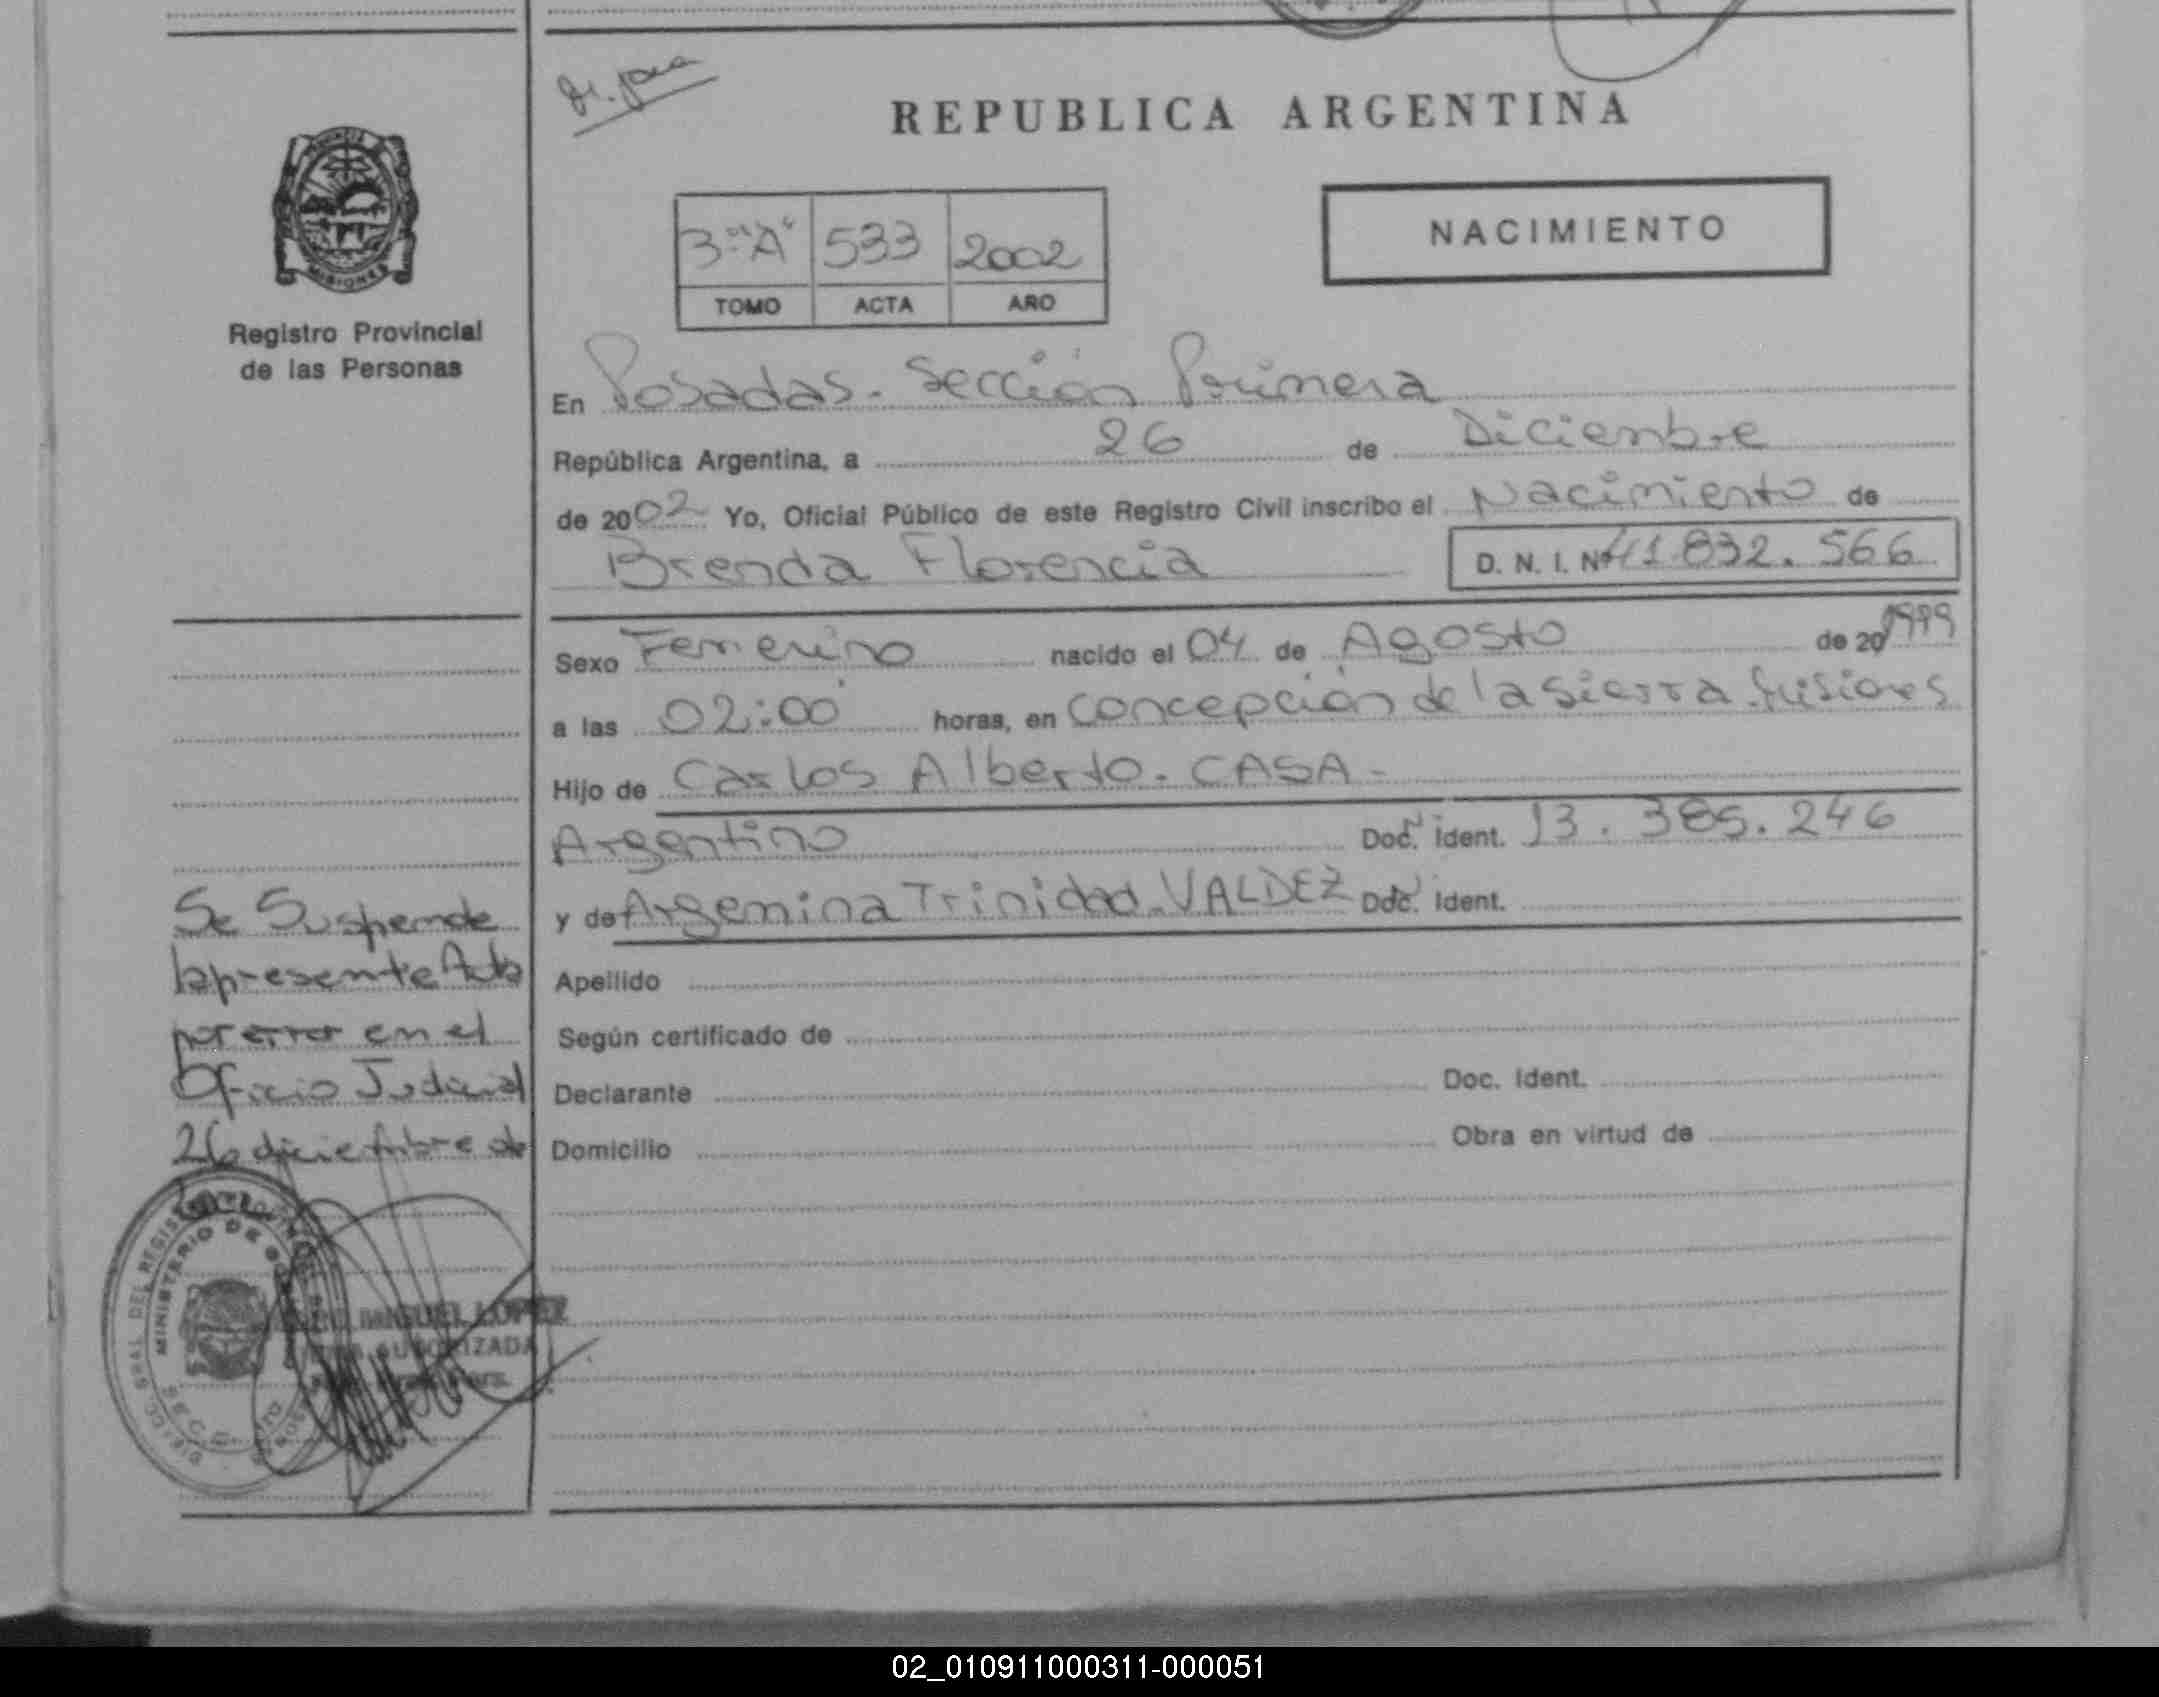 REPUBLICA ARGENTINA
NACIMIENTO
3º "A" 533 2002
TOMO ACTA AÑO
MISIONES
Registro Provincial
de las Personas
En Posadas. Sección Primera
República Argentina, a 26 de Diciembre
de 2002 Yo, Oficial Público de este Registro Civil inscribo el Nacimiento de
Brenda Florencia D. N. I. Nº 41.832.566
Sexo Femenino nacido el 04 de Agosto de 20 1999
a las 02:00 horas, en Concepción de la Sierra Misiones
Hijo de Carlos Alberto. CASA -
Argentino Doc. Ident. 13.385.246
y de Argemina Trinidad. VALDEZ Doc. Ident.
Apellido
Según certificado de
Declarante Doc. Ident.
Domicilio Obra en virtud de
Se Suspende
la presente Acta
por error en el
Oficio Judicial
26 diciembre de
MINISTERIO DE
MIGUEL LOPEZ
AUTORIZADA
02_010911000311-000051